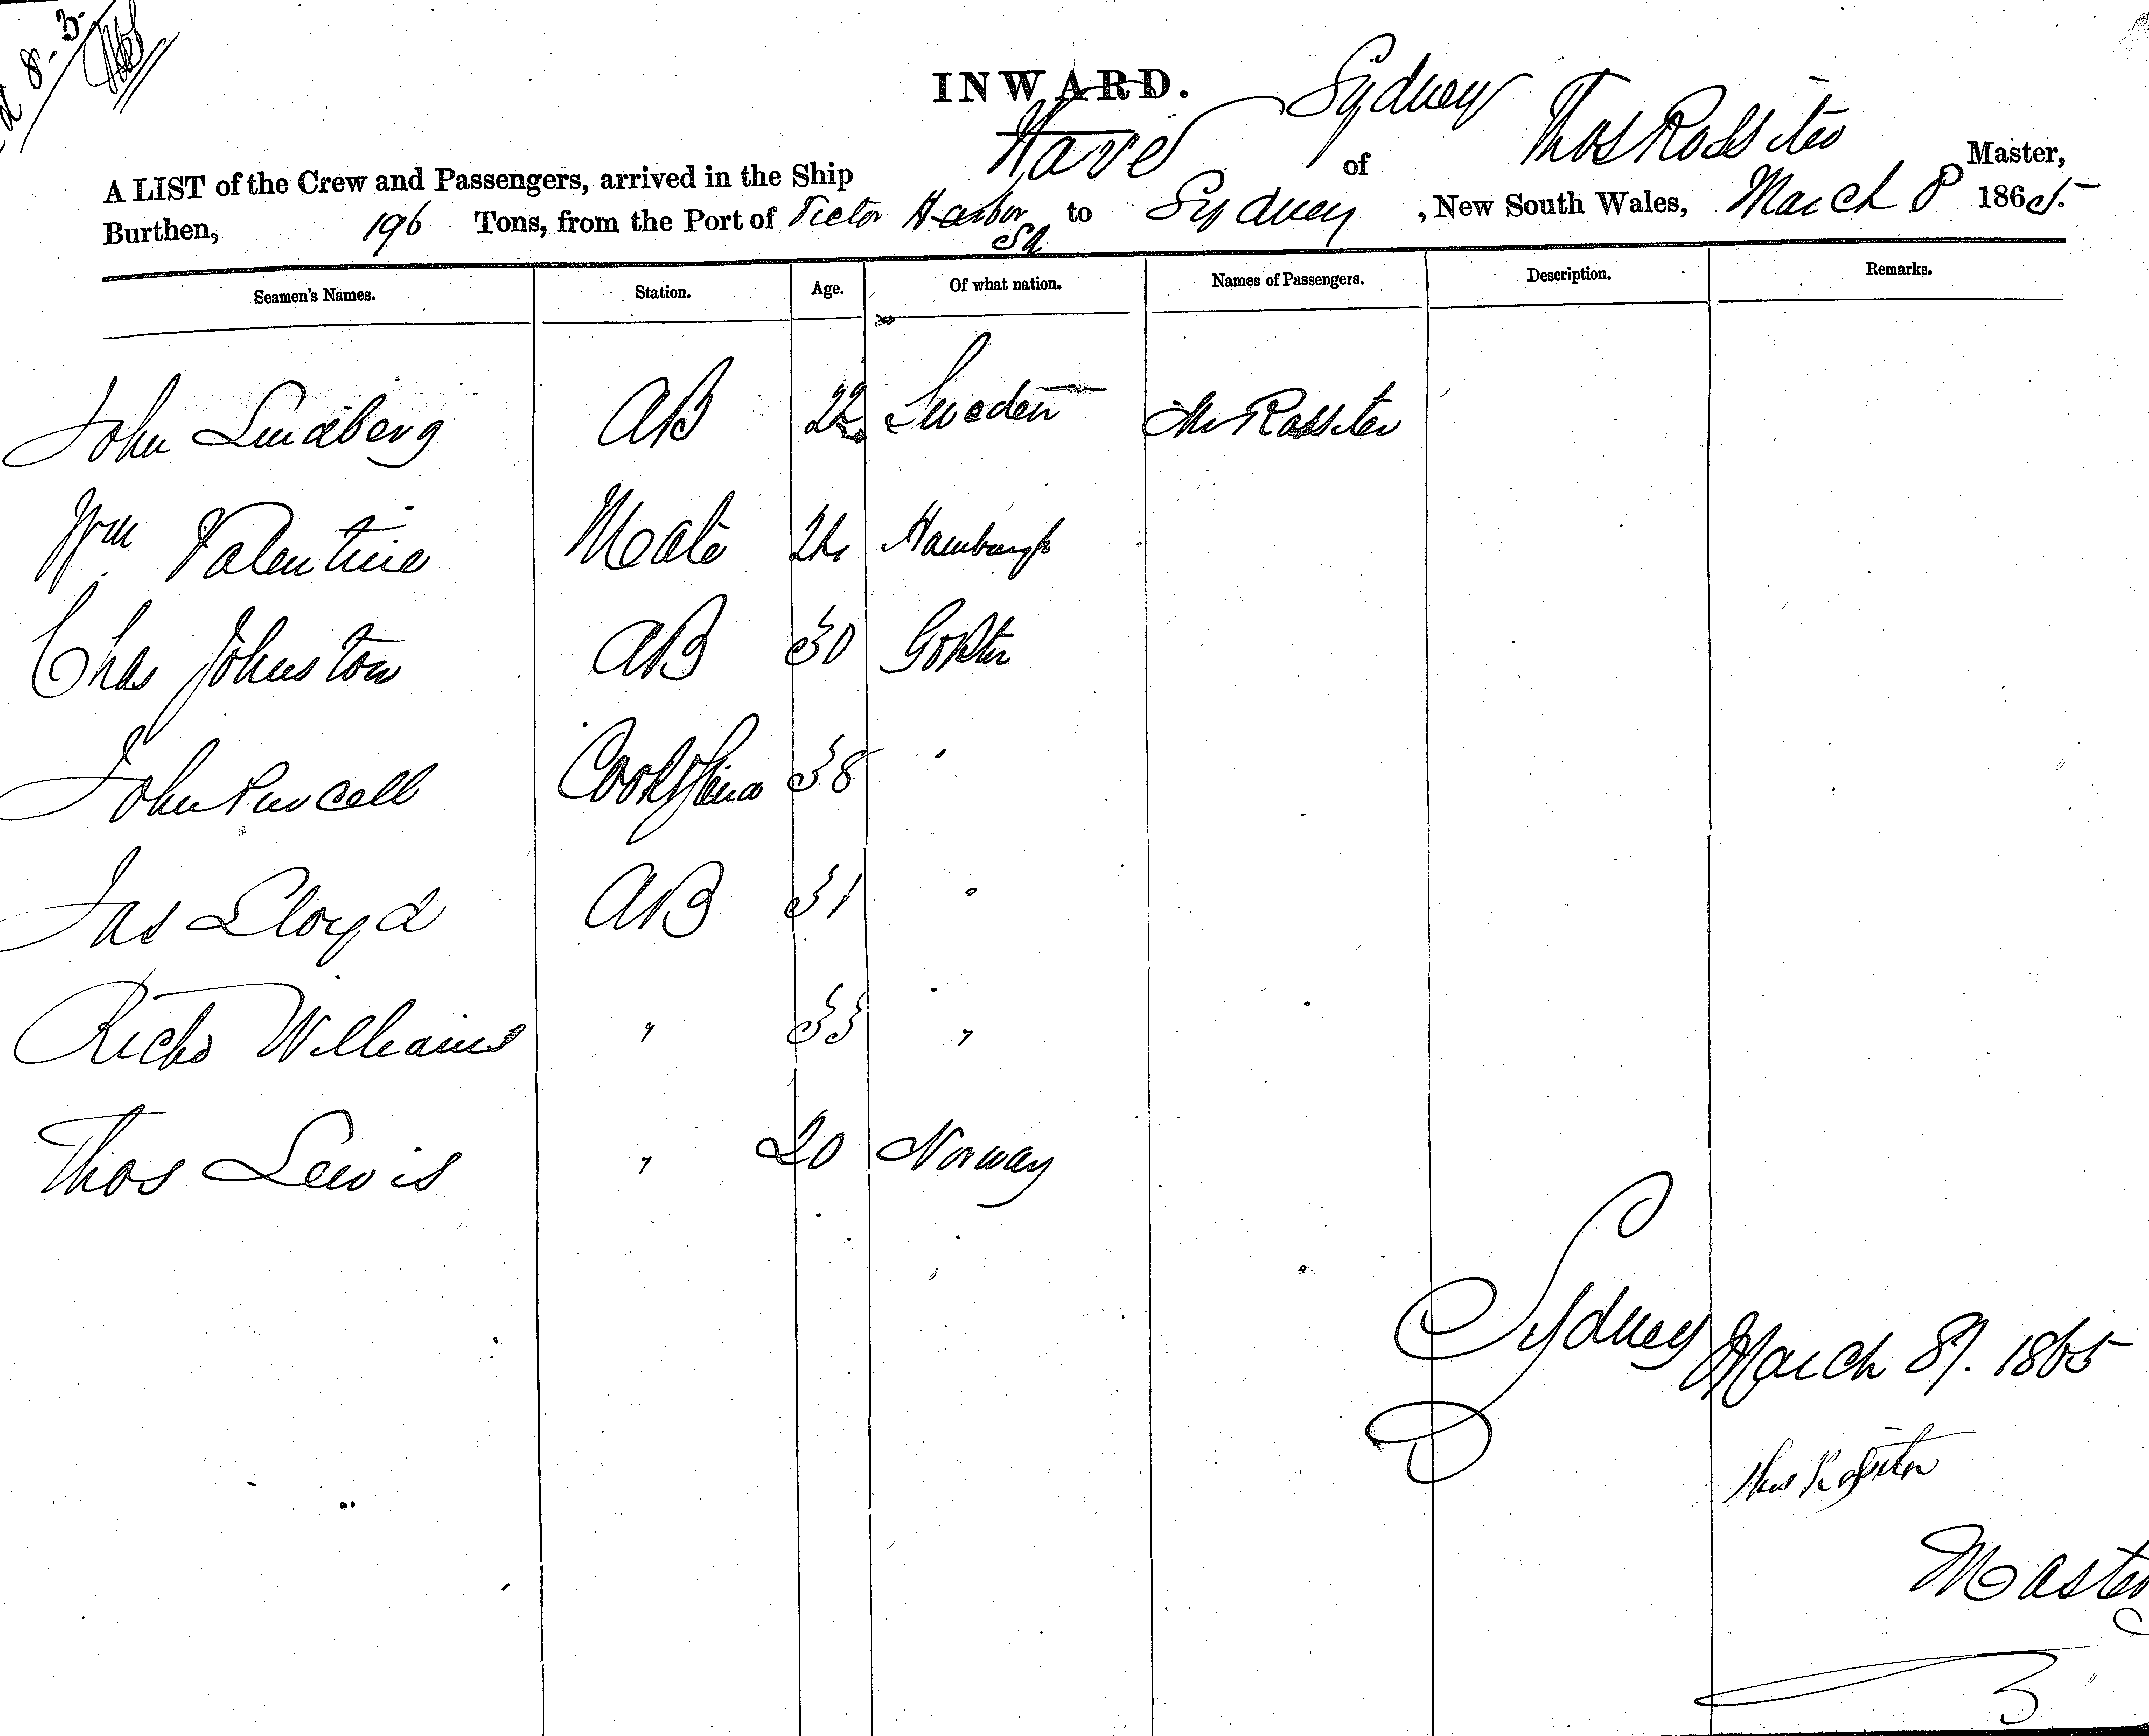 8-3
INWARD.
A LIST of the Crew and Passengers, arrived in the Ship Wave of Sydney Thos Rossiter Master,
Burthen, 196 Tons, from the Port of Victor Harbor SA to Sydney , New South Wales, March 8 1865.
Seamen's Names. Station. Age. Of what nation. Names of Passengers. Description. Remarks.
John Lindberg AB 22 Sweden Mr Rossiter
Wm Valentine Mate Hamburgh
Chas Johnston AB 30
John Purcell Cook 38 "
Jas Lloyd AB 31 "
Richd Williams " 33 "
Thos Lewis " 20 Norway
Sydney March 8/. 1865
Thos Rossiter
Master